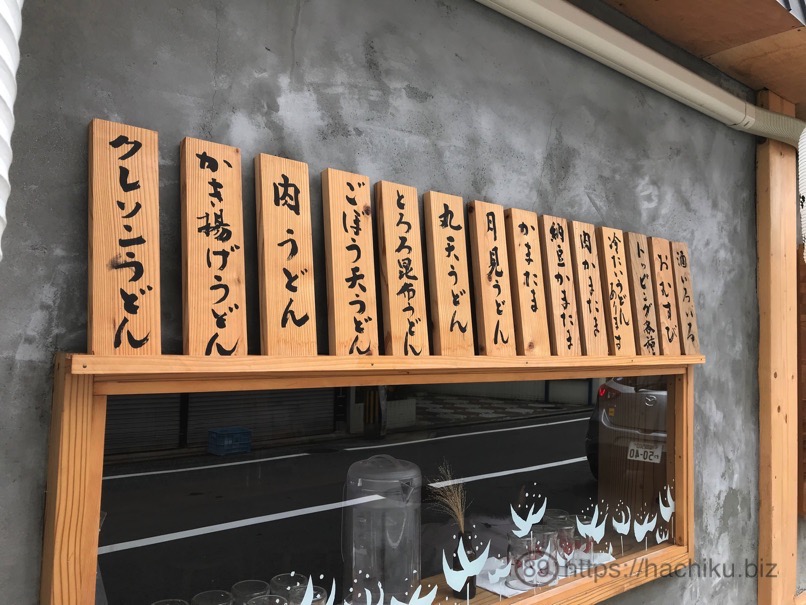 クレソンうどん
かき揚げうどん
肉うどん
ごぼう天うどん
とろろ昆布うどん
丸天うどん
月見うどん
かまたま
納豆かまたま
肉かまたま
冷たいうどん
あります
トッピング各種
おむすび
酒いろいろ
50-40
89 https://hachiku.biz